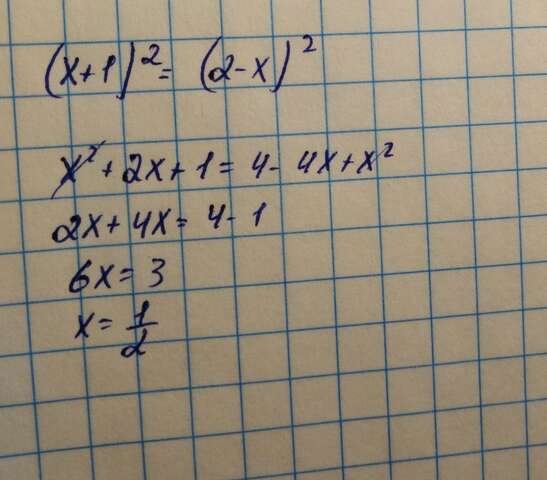 (x+1)² = (2-x)²
x² + 2x + 1 = 4 - 4x + x²
2x + 4x = 4 - 1
6x = 3
x = 1/2